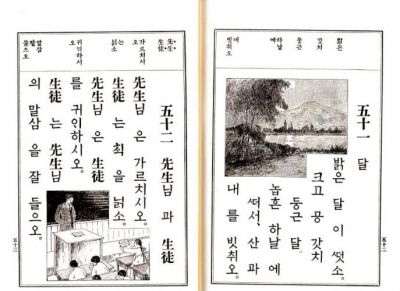 밝은
갓치
둥근
하날에
빗취오
五十一 달
밝은 달이 떳소。
크고 공갓치
둥근 달
놉흔 하날에
떠서、산과
내를 빗취오。
五十二
先生
生徒
가르치시오
닑소
귀인하시오
말삼
五十二 先生님과 生徒
先生님은 가르치시오。
生徒는 책을 닑소。
先生님은 生徒
를 귀인하시오。
生徒는 先生님
의 말삼을 잘 들으오。
五十三